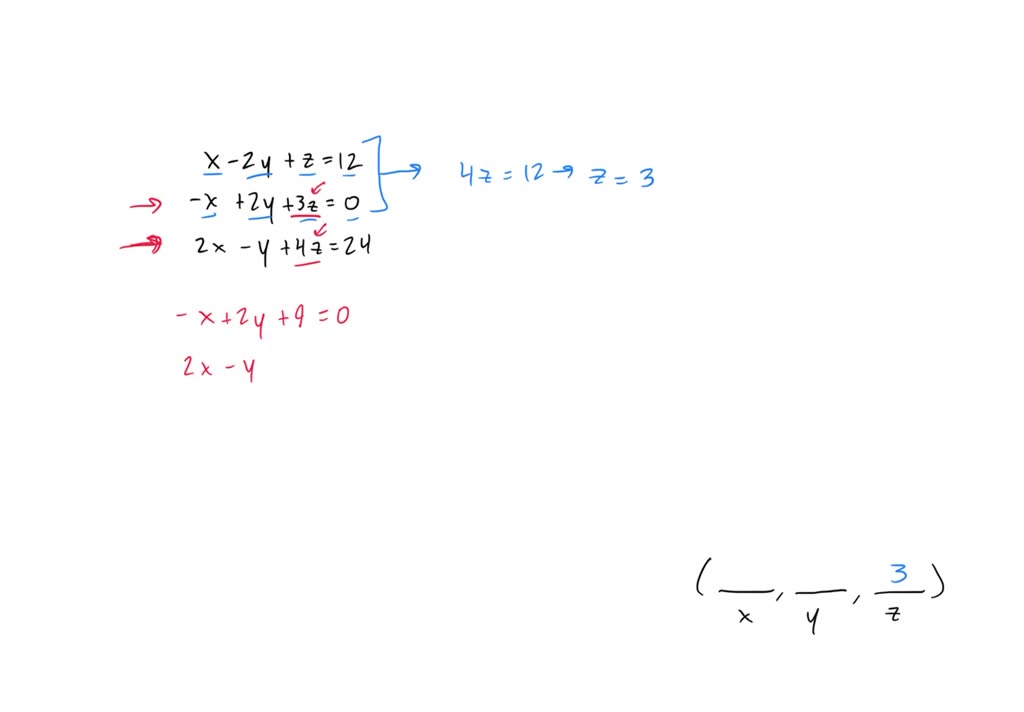 x - 2y + z = 12
4z = 12 → z = 3
-x + 2y + 3z = 0
2x - y + 4z = 24
- x + 2y + 9 = 0
2x - y
3
( __ , __ , __ )
x y z